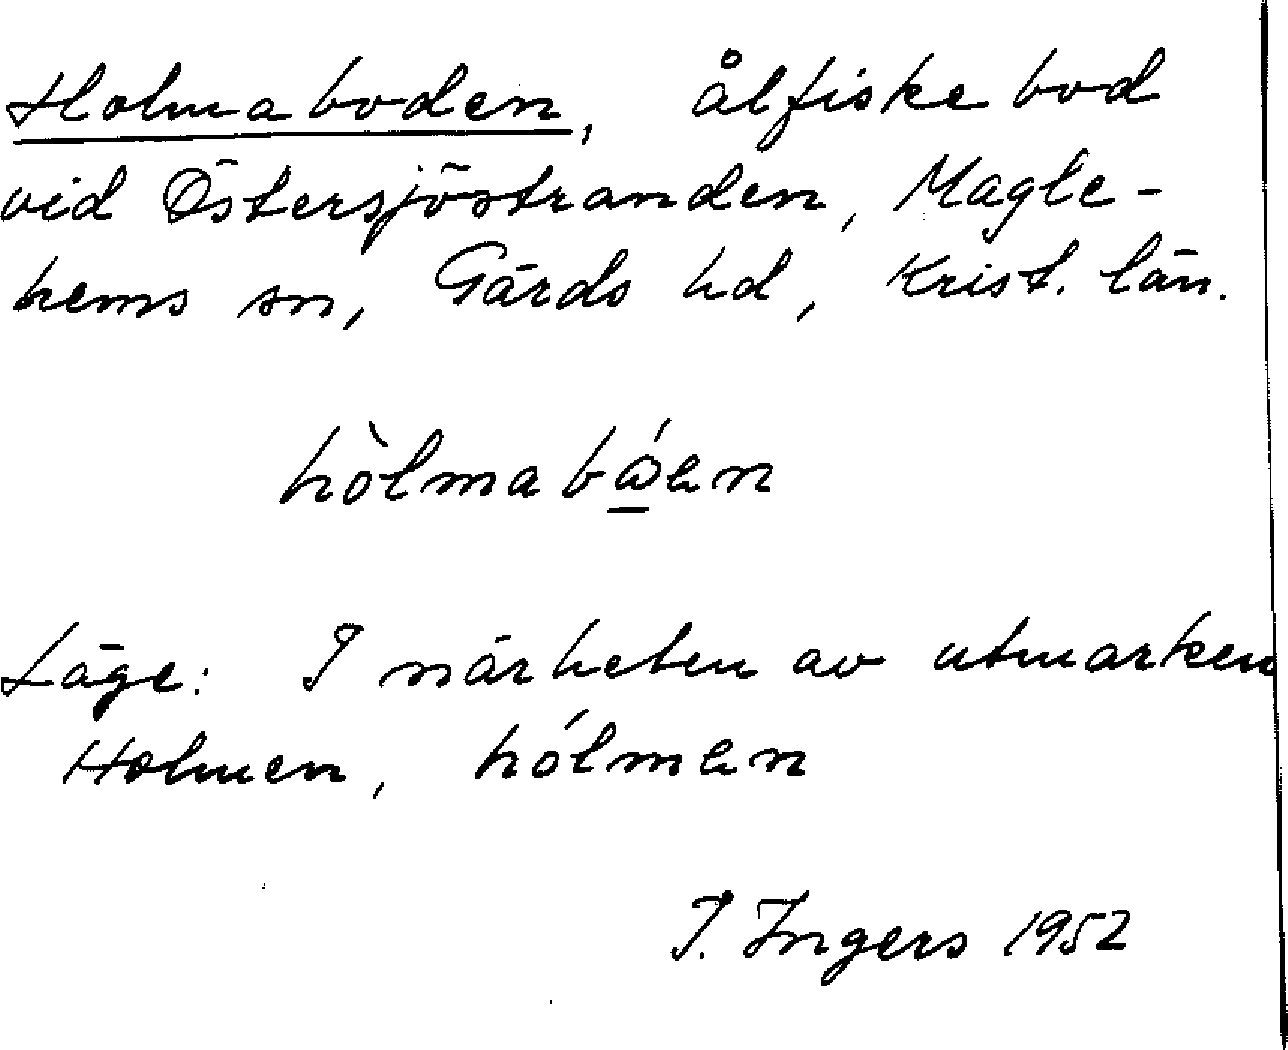 Holmaboden, ålfiskebod
vid Östersjöstranden, Magle-
hems sn, Gärds hd, Krist. län.
hòlmabώ̲en
Läge: I närheten av utmarken
Holmen, hólmen
I. Ingers 1952